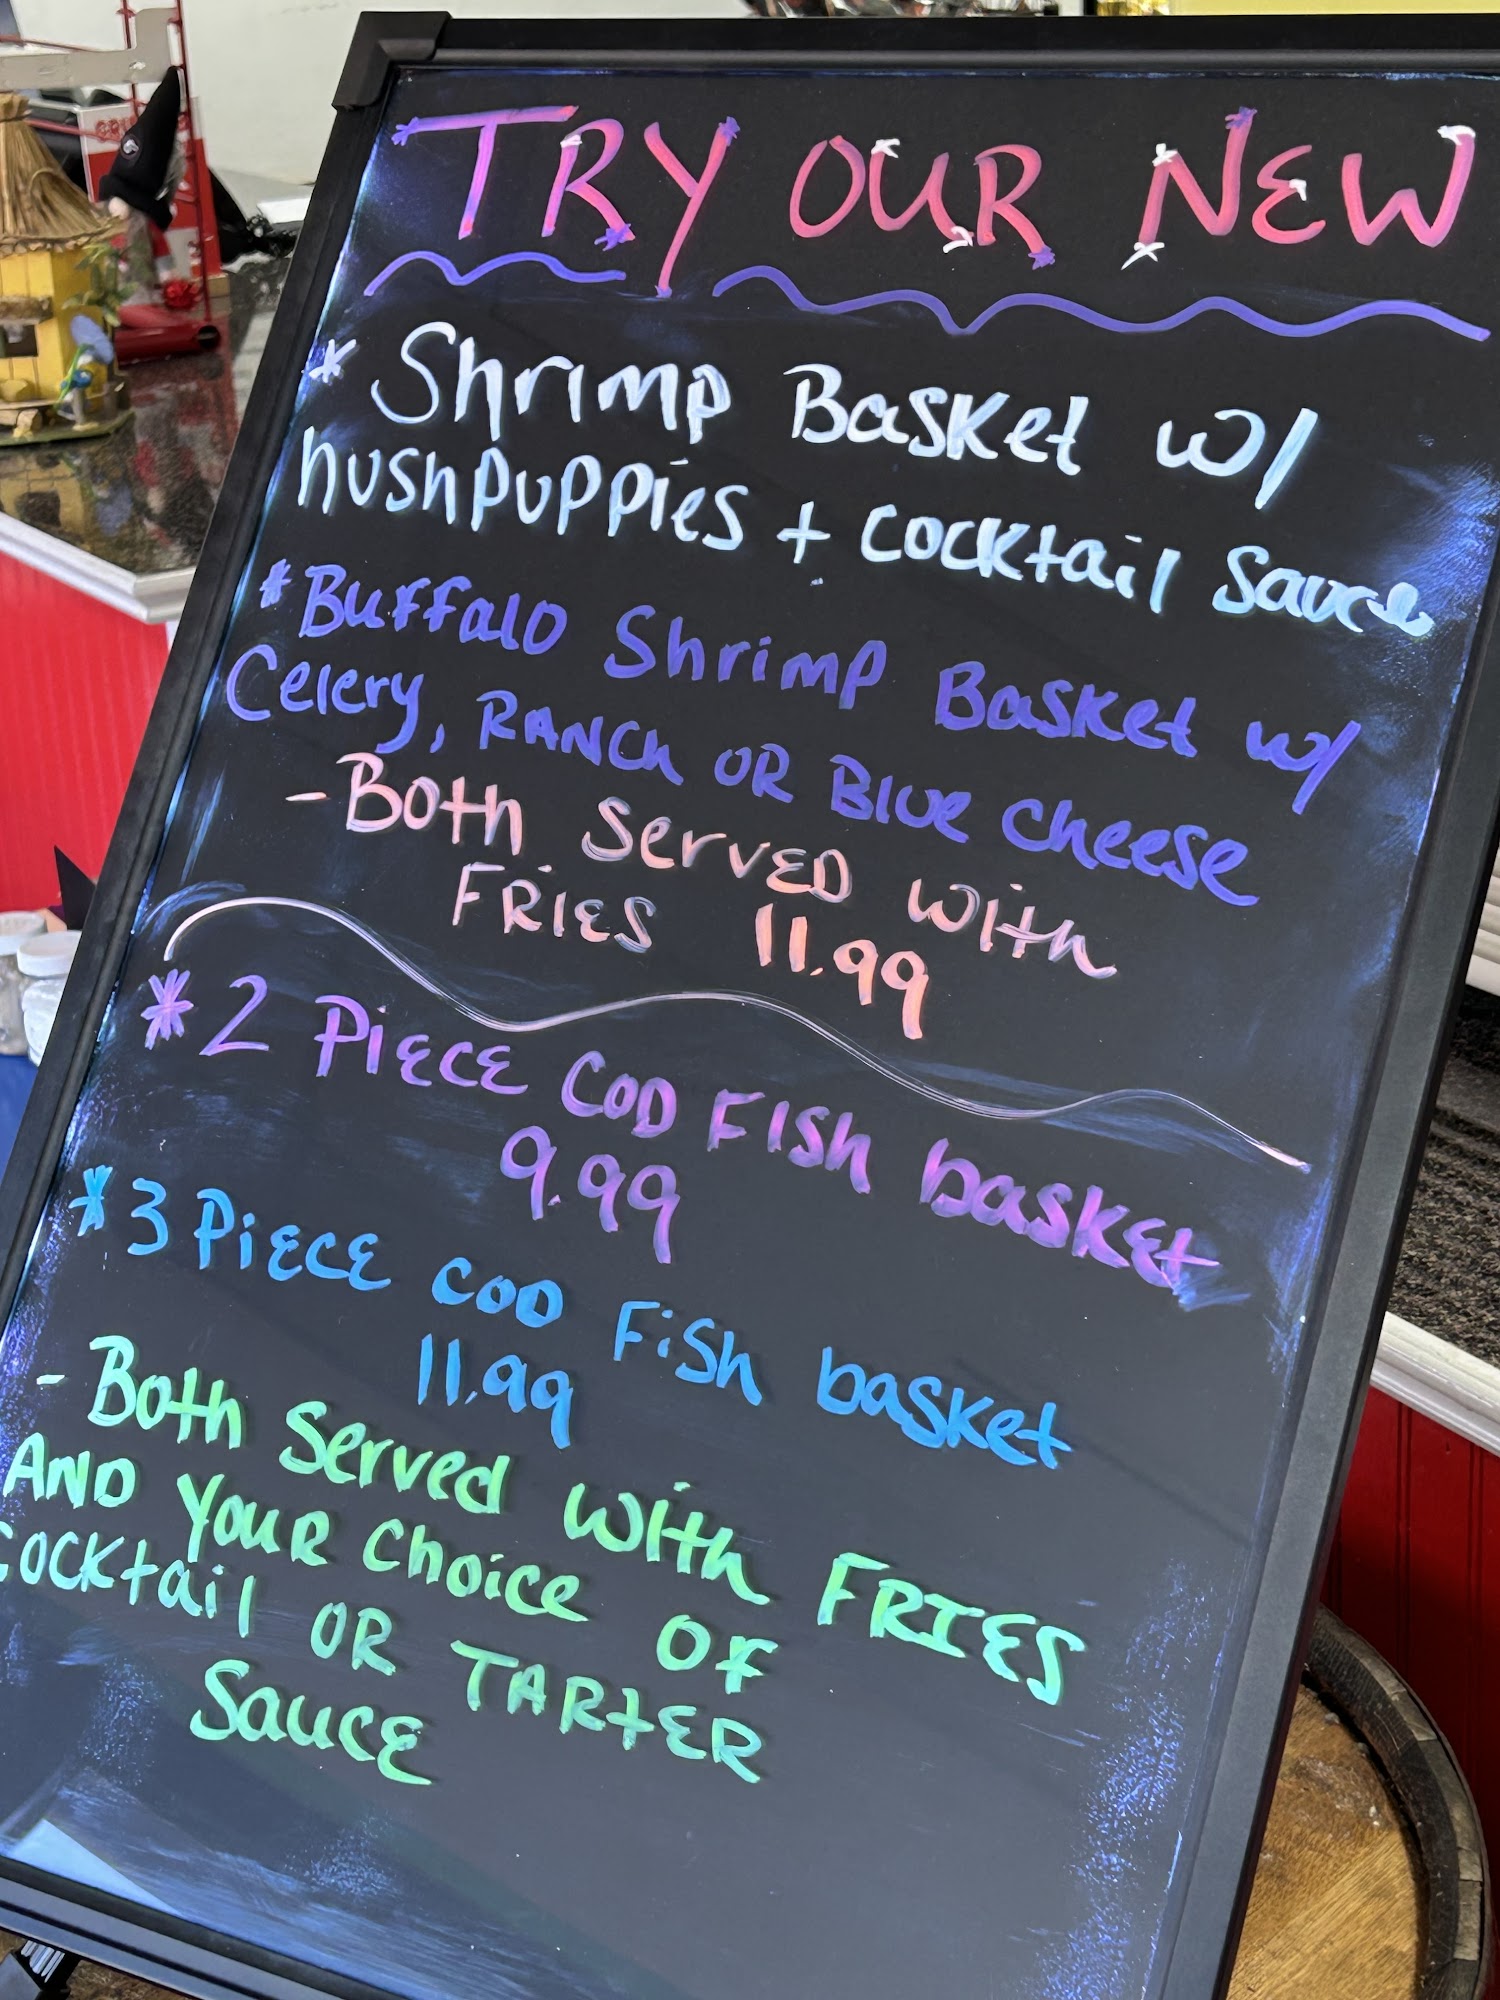 TRY OUR NEW
* Shrimp Basket w/
hushpuppies + cocktail Sauce
* Buffalo Shrimp Basket w/
Celery, RANCh OR Blue Cheese
- Both Served With
FRIES 11.99
* 2 PIECE COD FISh basket
9.99
* 3 PIECE COD FiSh basket
11.99
- Both Served With FRIES
AND YOUR Choice OF
Cocktail OR TARTER
SAUCE